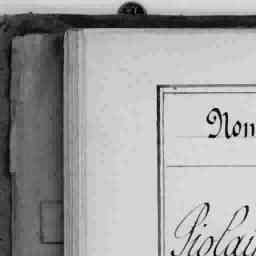 Nom
Piolai